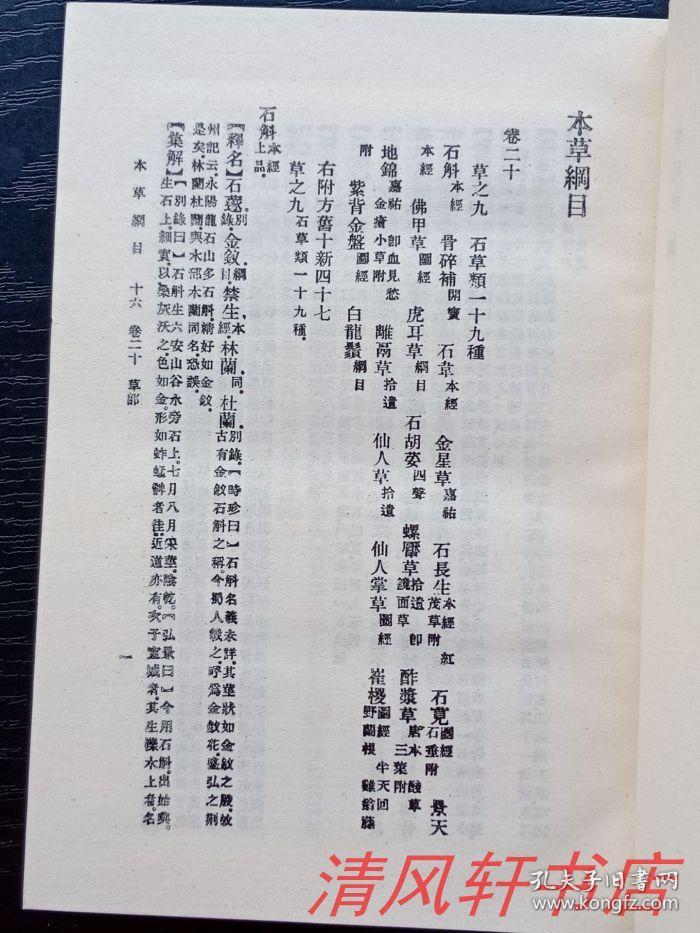 本草綱目
卷二十
草之九 石草類一十九種
石斛本經 骨碎補開寶 石韋本經 金星草嘉祐 石長生本經 紅茂草附 石莧圖經 石垂附 景天
本經 佛甲草圖經 虎耳草綱目 石胡荽四聲 螺厴草拾遺 即鏡面草 酢漿草唐本 酸草 三葉附
地錦嘉祐 即血見愁 金瘡小草附 離鬲草拾遺 仙人草拾遺 仙人掌草圖經 崔椶圖經 半天回 野蘭根 雞翁藤
附 紫背金盤圖經 白龍鬚綱目
右附方舊十新四十七
草之九石草類一十九種。
石斛本經上品。
【釋名】石蓫別錄。金釵綱目。禁生本經。林蘭同。杜蘭別錄。【時珍曰】石斛名義未詳。其莖狀如金釵之股。故
古有金釵石斛之稱。今蜀人栽之。呼為金釵花。盛弘之荊
州記云。永陽龍石山多石斛。精好如金釵。
是矣。林蘭杜蘭。與木部木蘭同名。恐誤。
【集解】【別錄曰】石斛生六安山谷水旁石上。七月八月采莖。陰乾。【弘景曰】今用石斛。出始興。
生石上。細實。以桑灰沃之。色如金。形如蚱蜢髀者佳。近道亦有。次于宣城者。其生櫟木上者。名
本草綱目 十六 卷二十 草部 一
清风轩书店
孔夫子旧书网
www.kongfz.com